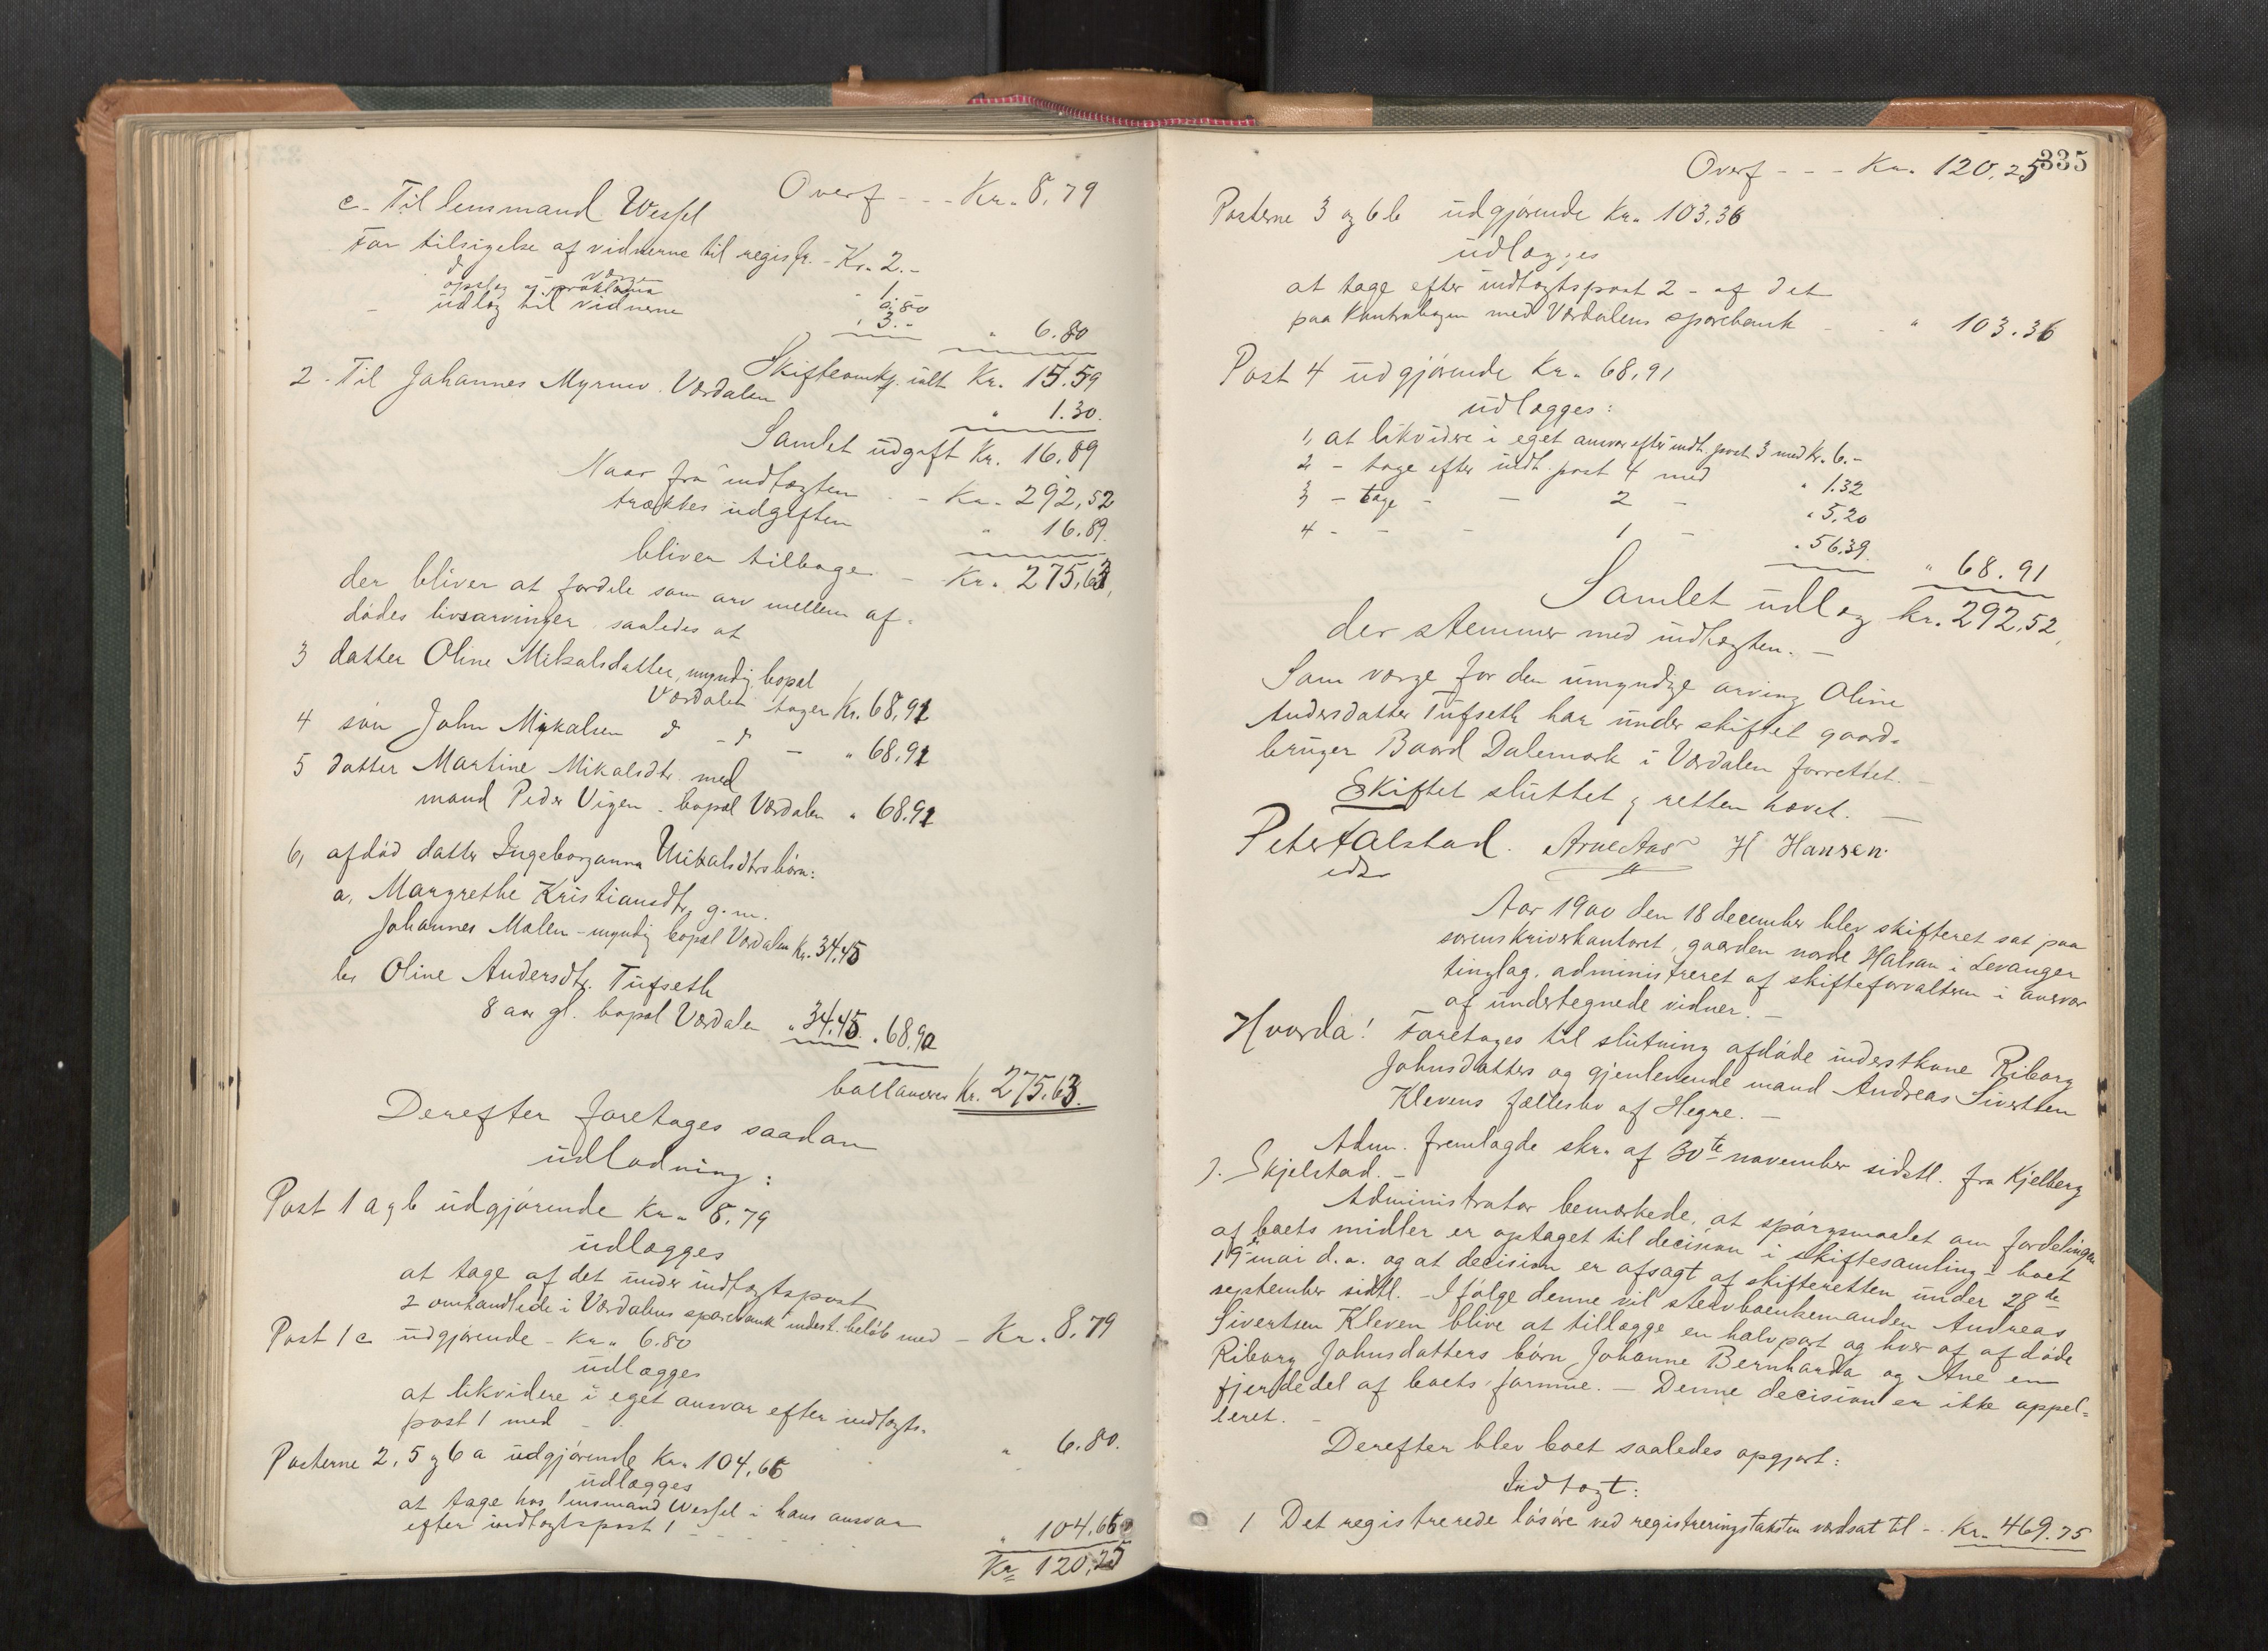 Overf - - - Kr. 8,79
c. Til lensmand Wessel
For tilsigelse af vidnerne til registr. - Kr. 2.-
d° værge " 1.-
opslag af proklama " 0.80
- udlæg til vidnerne " 3.- " 6.80
Skifteomkg. ialt Kr. 15.59
2. Til Johannes Myrmo. Værdalen " 1.30.
Samlet udgift Kr. 16.89
Naar fra indtægten - Kr. 292,52
trækkes udgiften " 16.89.
bliver tilbage - Kr. 275,63,
der bliver at fordele som arv mellem af-
dødes livsarvinger saaledes at
3 datter Oline Mikalsdatter, myndig, bopæl
Værdalen tager Kr. 68,91
4 søn John Mikalsen d° - d° - " 68,91
5 datter Martine Mikalsdtr. med
mand Peder Vigen - bopæl Værdalen " 68.91
6, afdød datter Ingeborganna Mikalsdtrs børn:
a, Margrethe Kristiansdtr, g. m.
Johannes Molen - myndig bopæl Værdalen Kr. 34.45
b, Oline Andersdtr. Tufseth
8 aar gl. bopæl Værdalen " 34.45. " 68.90
ballancerer Kr. 275,63.
Derefter foretages saadan
udlodning:
Post 1 a og b udgjørende Kr. 8,79
udlægges
at tage af det under indtægtspost
2 omhandlede i Værdalens sparebank indest. beløb med - Kr. 8,79
Post 1 c udgjørende - Kr. 6.80
udlægges
at likvidere i eget ansvar efter indtægts-
post 1 med - " 6.80.
Posterne 2, 5 og 6 a udgjørende Kr. 104,66
udlægges
at tage hos lensmand Wessel i hans ansvar
efter indtægtspost 1 - - - " 104,66
Kr. 120,25
335
Overf - - - Kr. 120,25
Posterne 3 og 6 b udgjørende Kr. 103.36
udlægges
at tage efter indtægtspost 2 - af det
paa kontrabogen med Værdalens sparebank - - " 103.36
Post 4 udgjørende Kr. 68,91
udlægges:
1, at likvidere i eget ansvar efter indt. post 3 med Kr. 6.-
2 - tage efter indt. post 4 med " 1.32
3 - tage - - 2 - " 5,20
4 - - - 1 - " 56.39. " 68.91
Samlet udlæg kr. 292,52,
der stemmer med indtægten. -
Som værge for den umyndige arving Oline
Andersdatter Tufseth har under skiftet gaard-
bruger Baard Dalemark i Værdalen forrettet. -
Skiftet sluttet og retten hævet. -
Peter Halstad. Arne Aas H Hansen.
Aar 1900 den 18 december blev skifteret sat paa
sorenskriverkontoret, gaarden nordre Halsan i Levanger
tinglag, administreret af skifteforvalteren i overvær
af undertegnede vidner. -
Hvorda! Foretages til slutning afdøde inderstkone Riborg
Johnsdatters og gjenlevende mand Andreas Sivertsen
Klevens fællesbo af Hegre. -
Adm. fremlagde skr. af 30te november sidstl. fra Kjelberg
J. Skjelstad. -
Administrator bemærkede, at spørgsmaalet om fordelingen
af boets midler er optaget til decision i skiftesamling i boet
19 mai d. a. og at decision er afsagt af skifteretten under 28de
september sidstl. - Ifølge denne vil sterboenkemanden Andreas
Sivertsen Kleven blive at tillægge en halvpart og hver af afdøde
Riborg Johnsdatters børn Johanne Bernharda og Ane en
fjerdedel af boets formue. - Denne decision er ikke appel-
leret. -
Derefter blev boet saaledes opgjort:
Indtægt:
1 Det registrerede løsøre ved registreringstaksten værdsat til - Kr. 469.75